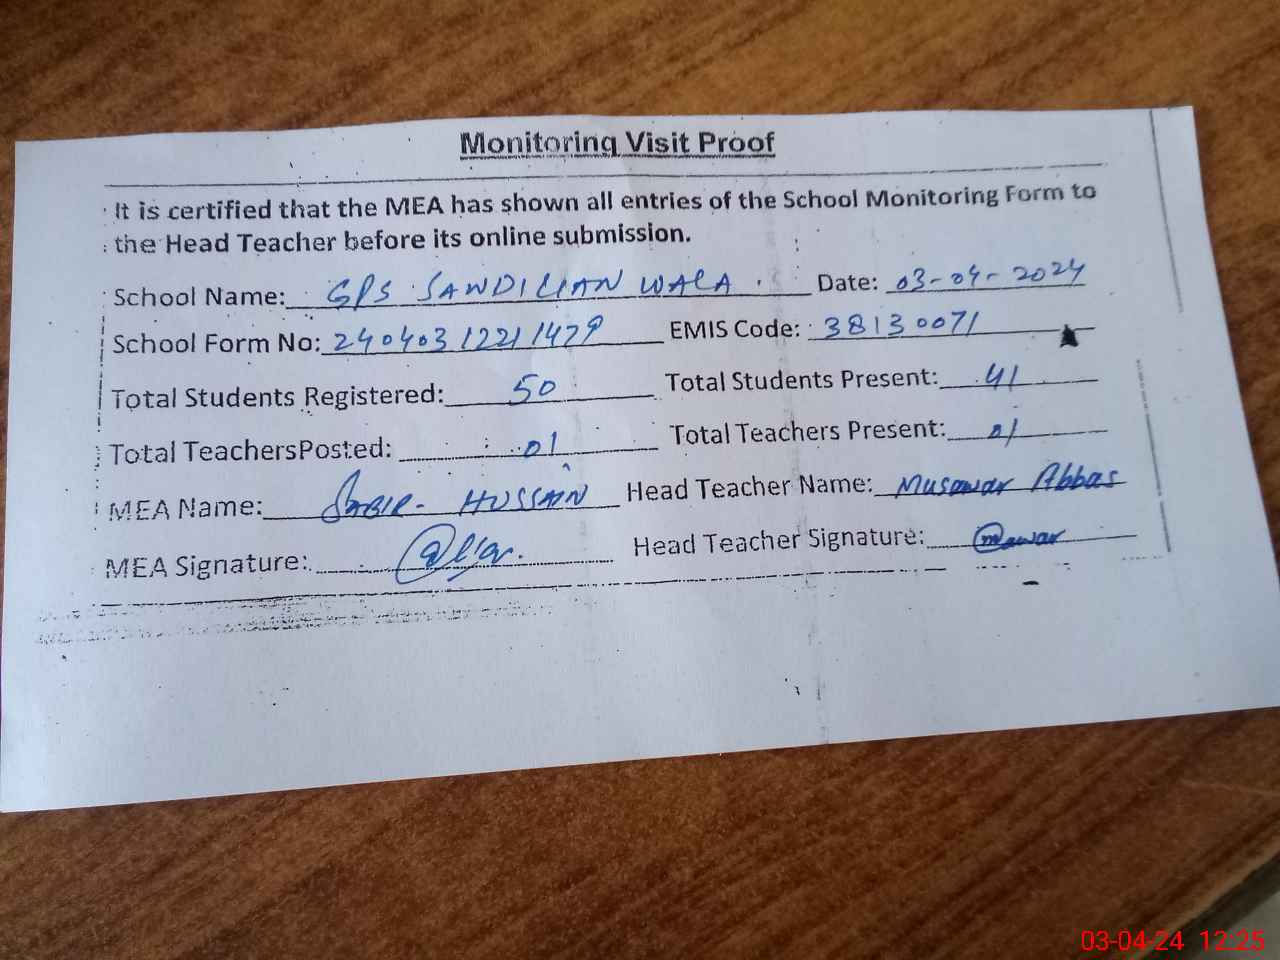 Monitoring Visit Proof
It is certified that the MEA has shown all entries of the School Monitoring Form to
the Head Teacher before its online submission.
School Name: GPS SANDILIAN WALA Date: 03-04-2024
School Form No: 24040312211479 EMIS Code: 38130071
Total Students Registered: 50 Total Students Present: 41
Total TeachersPosted: 01 Total Teachers Present: 01
MEA Name: SABIR HUSSAIN Head Teacher Name: Musawar Abbas
MEA Signature: Head Teacher Signature:
03-04-24 12:25